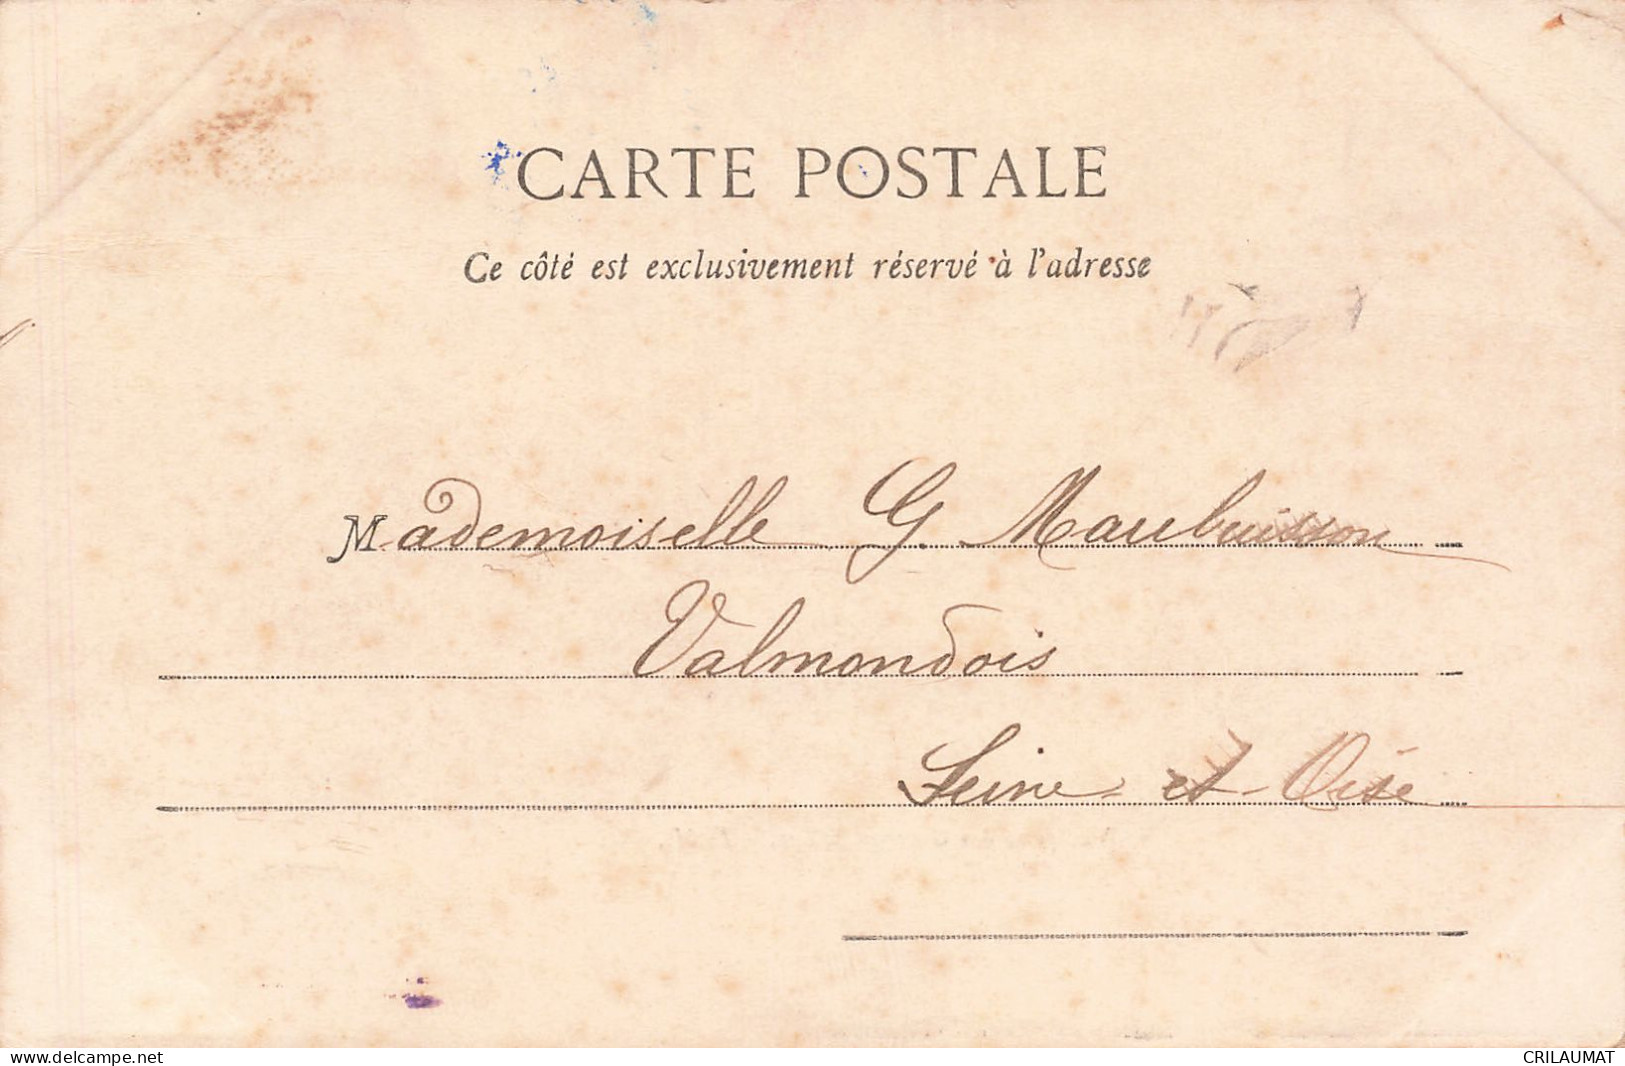 CARTE POSTALE
Ce côté est exclusivement réservé à l'adresse
Mademoiselle G. Maubuisson
Valmondois
Seine et Oise
www.delcampe.net
CRILAUMAT